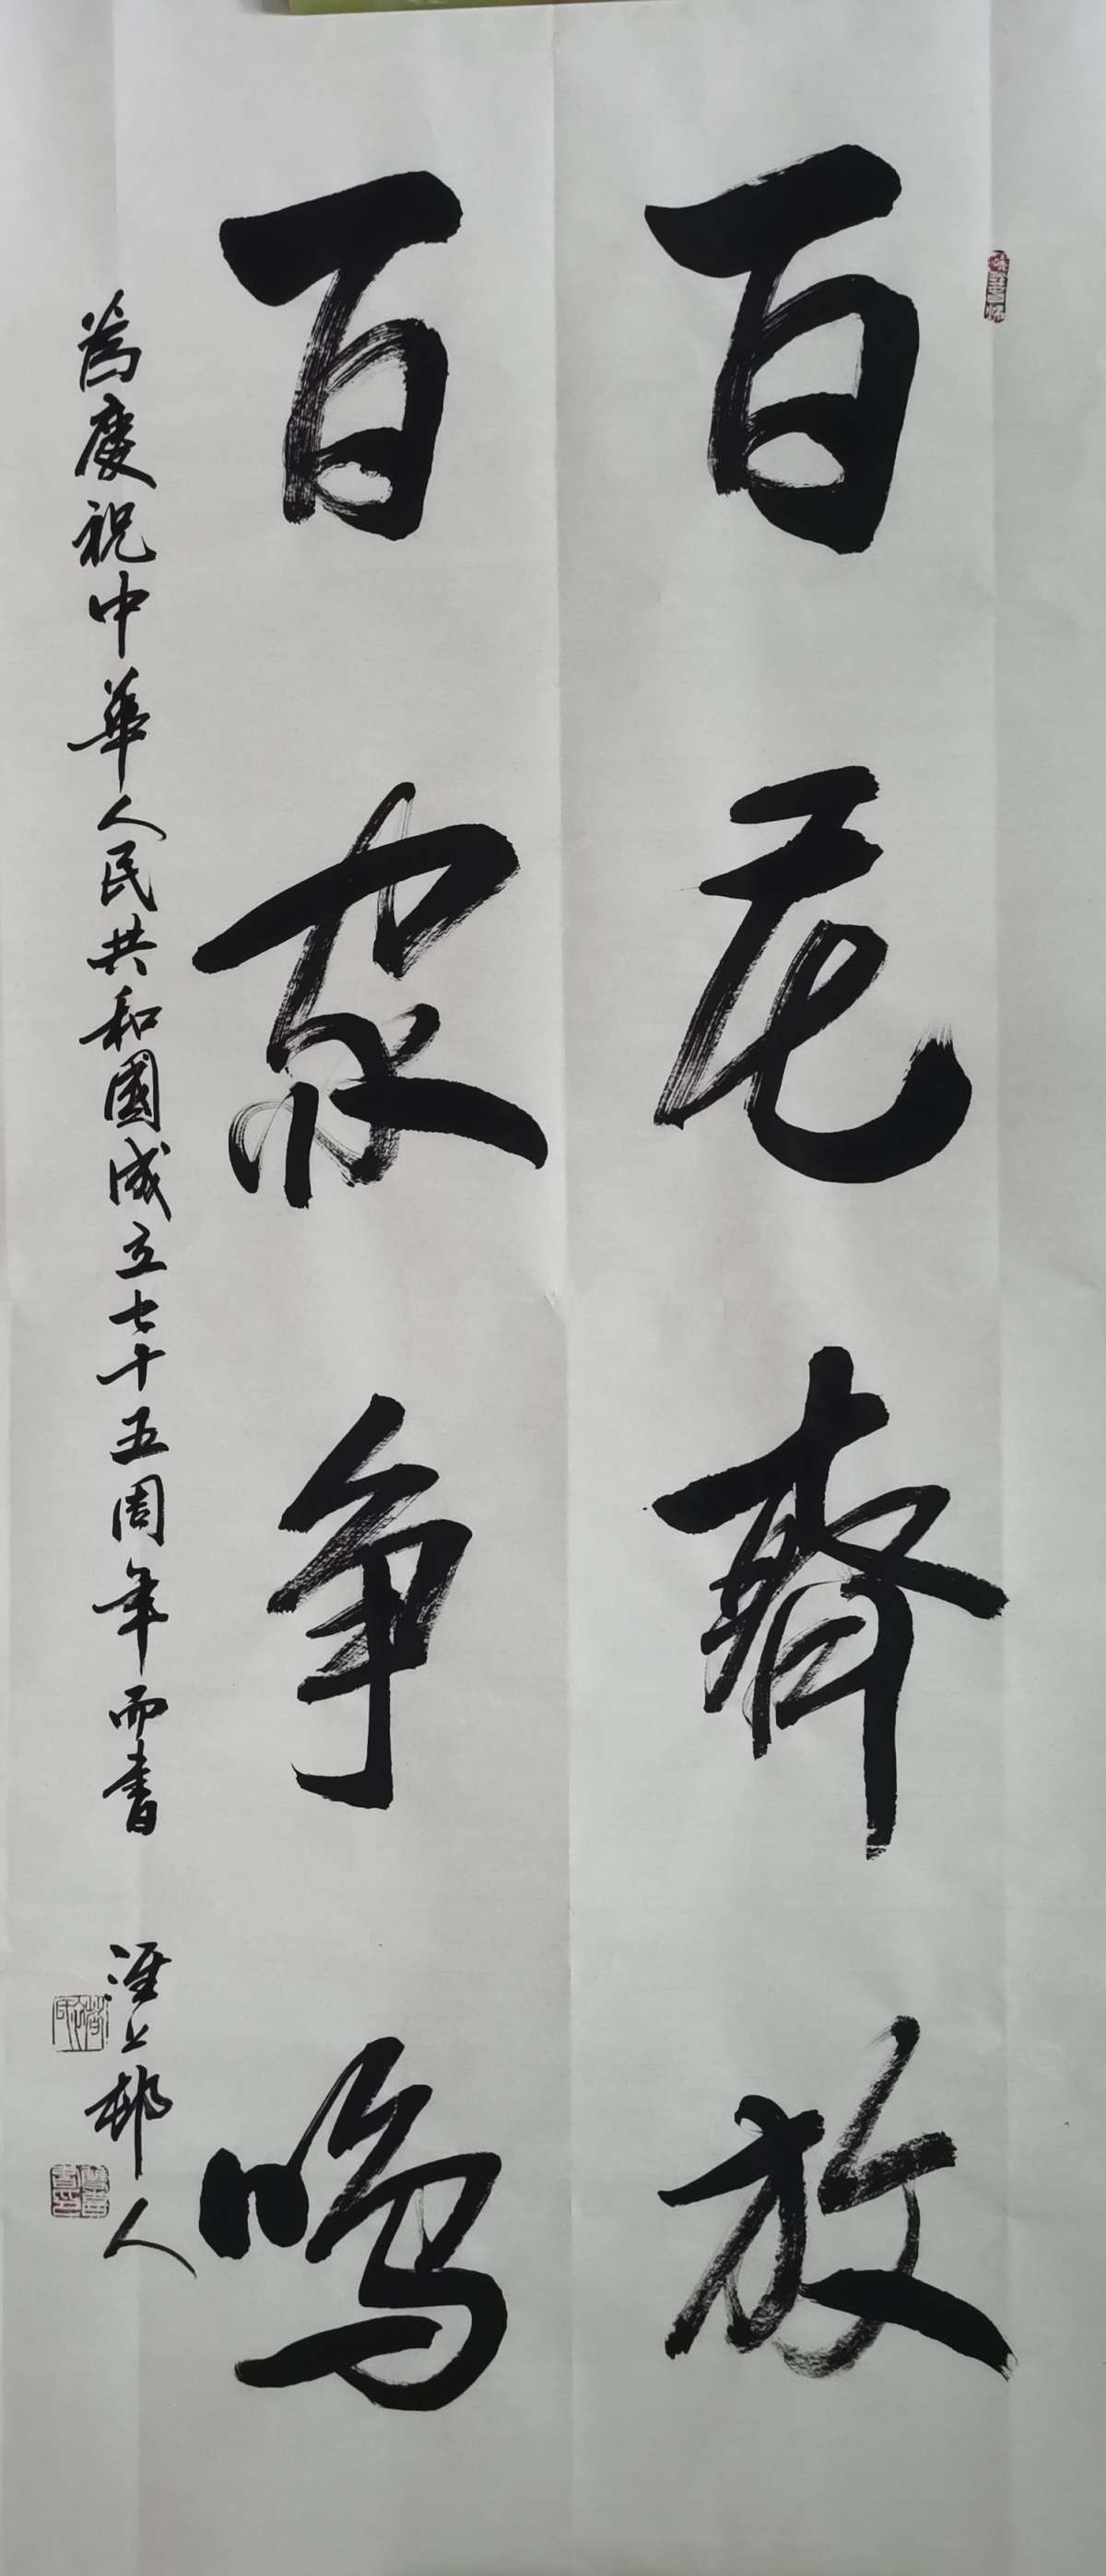 百花齊放
百家争鳴
為慶祝中華人民共和國成立七十五周年而書
淮上邨人